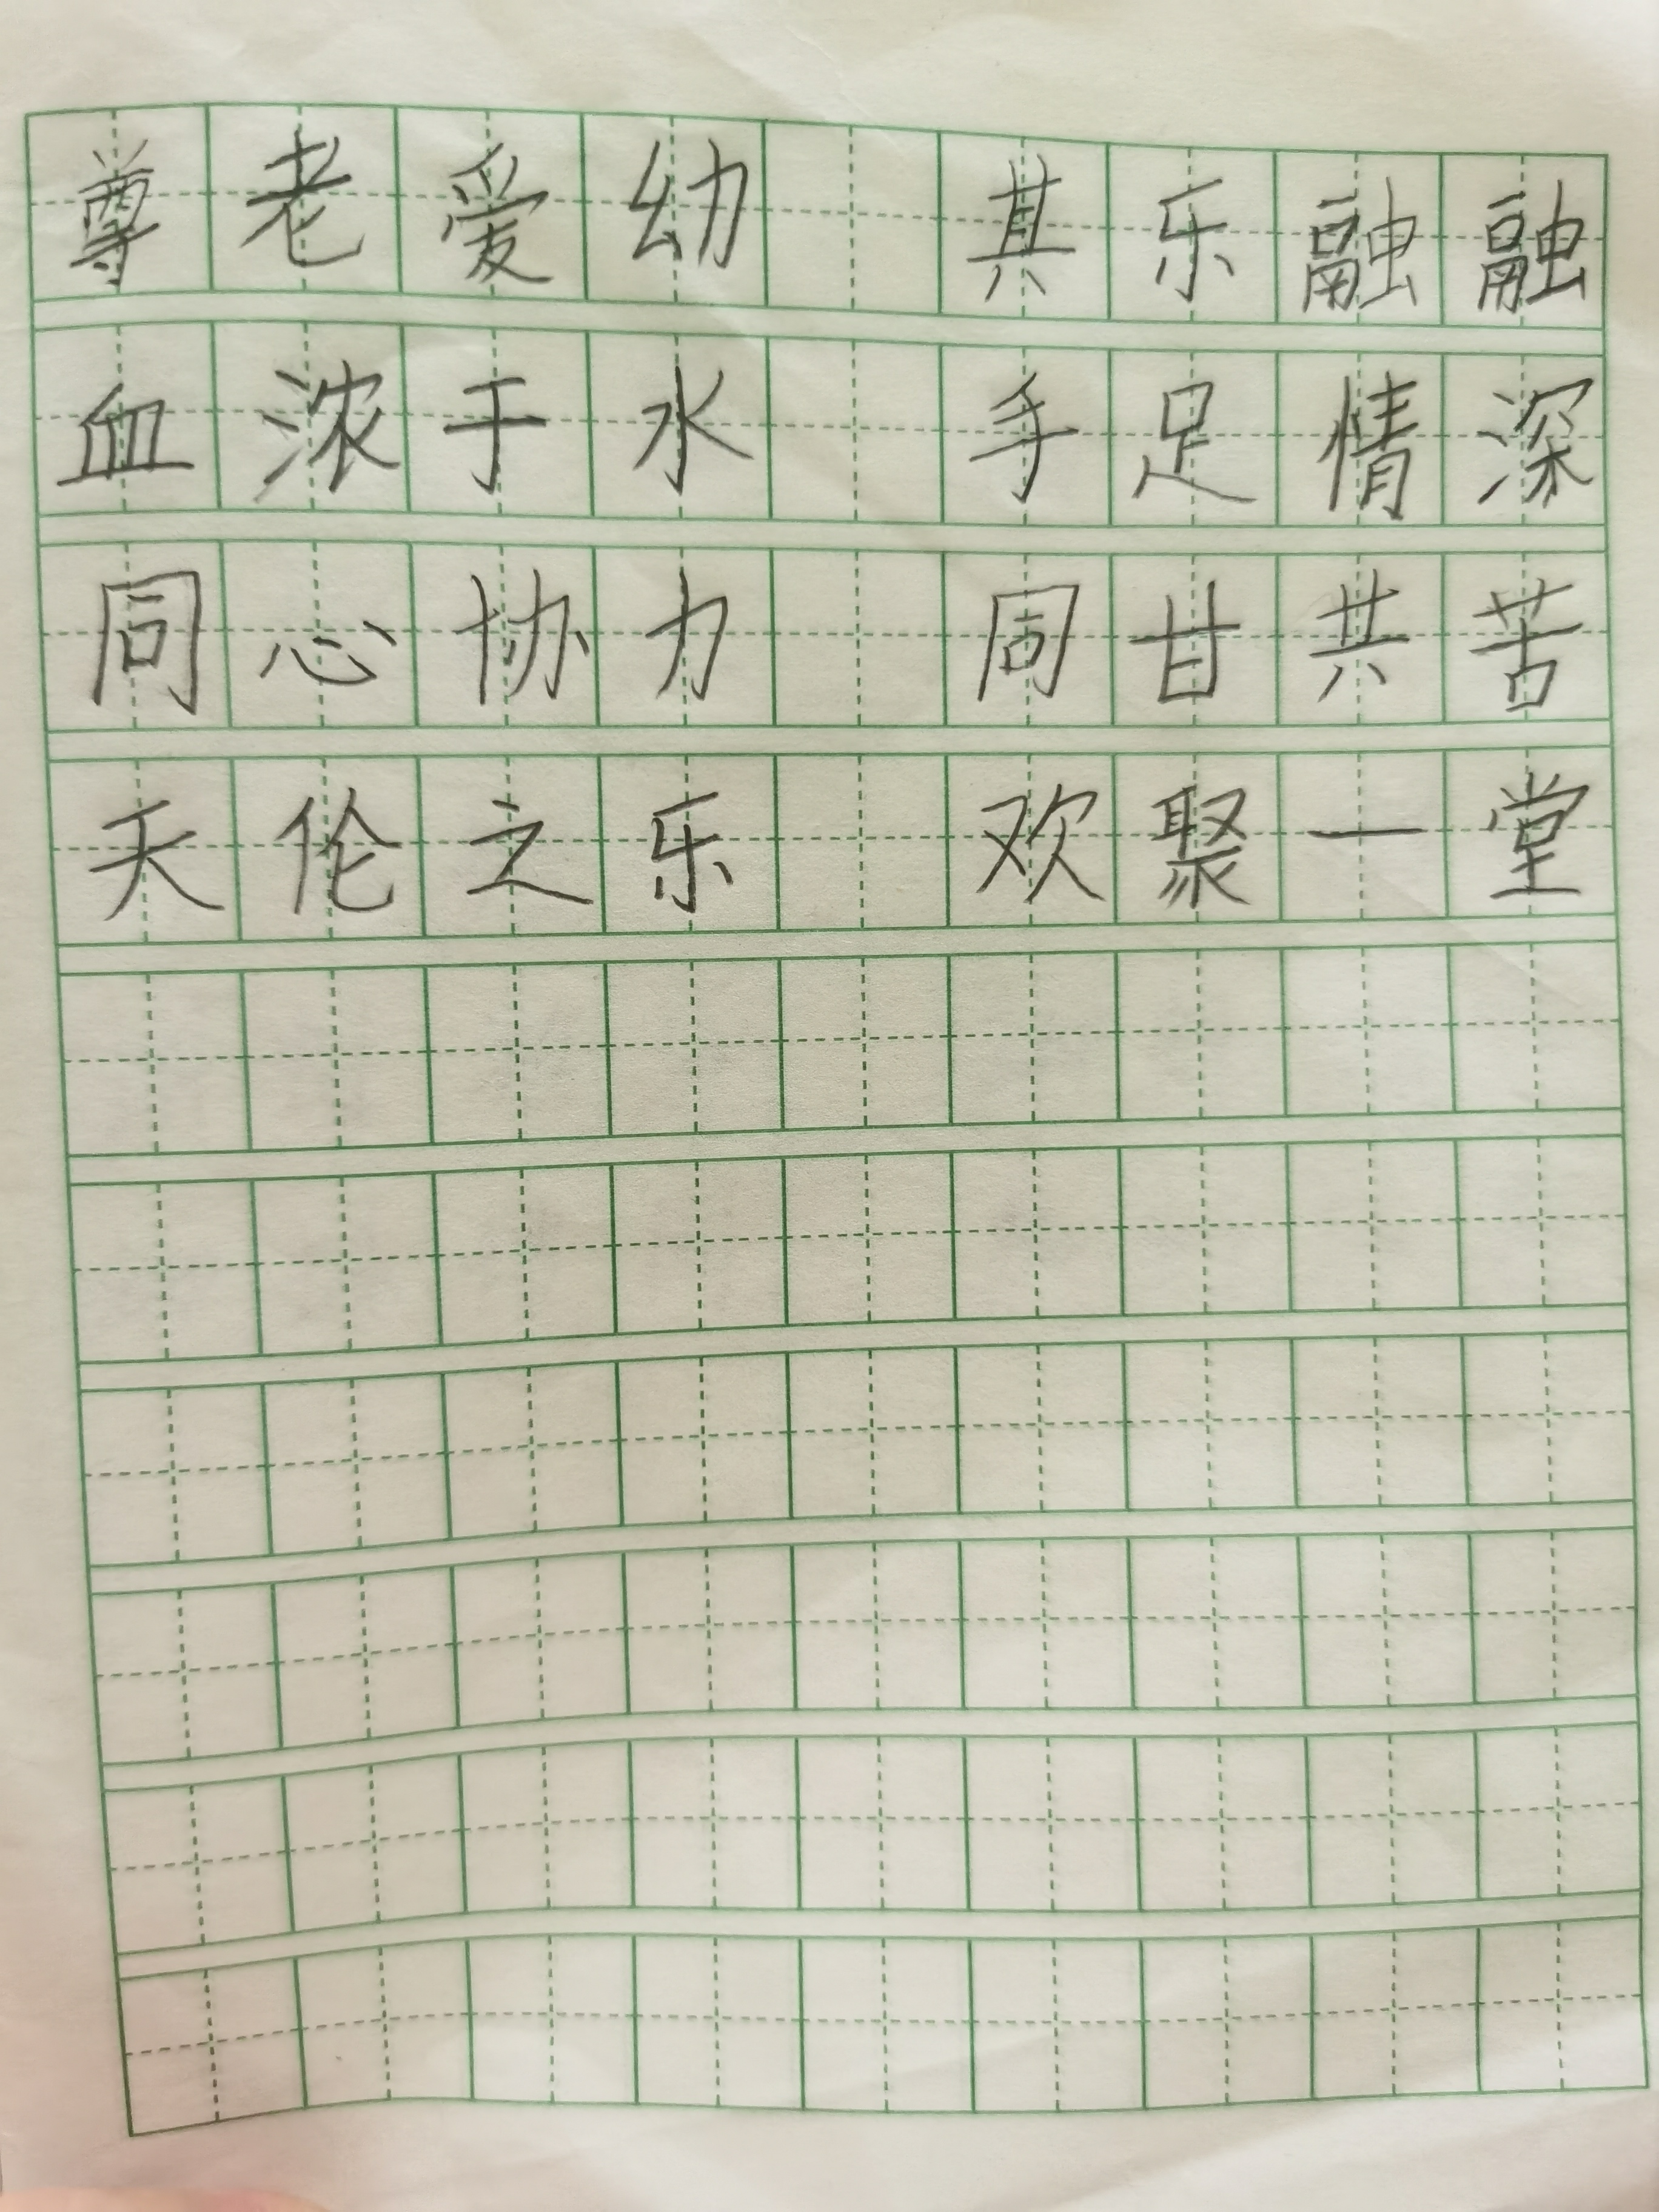 尊老爱幼 其乐融融
血浓于水 手足情深
同心协力 同甘共苦
天伦之乐 欢聚一堂